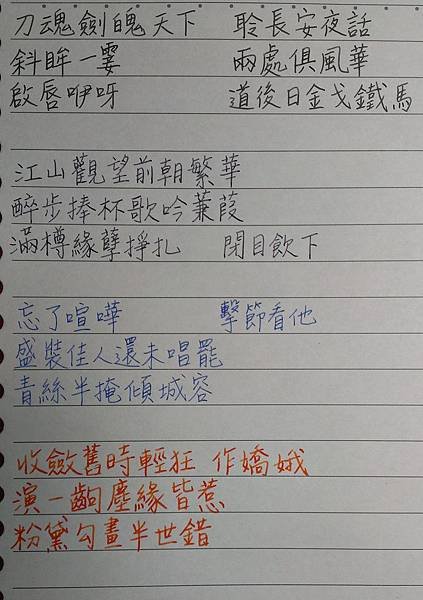 刀魂劍魄天下 聆長安夜話
斜眸一霎 兩處俱風華
啟唇咿呀 道後日金戈鐵馬
江山觀望前朝繁華
醉步捧杯歌吟蒹葭
滿樽緣孽掙扎 閉目飲下
忘了喧嘩 擊節看他
盛裝佳人還未唱罷
青絲半掩傾城容
收斂舊時輕狂 作嬌娥
演一齣塵緣皆惹
粉黛勾畫半世錯